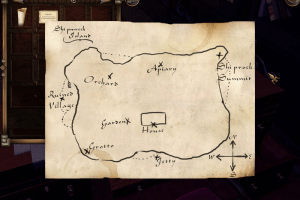 Shiprock
Island
Apiary
Orchard
Shiprock
Summit
Ruined
Village
Garden
House
Grotto
Jetty
N
W
E
S